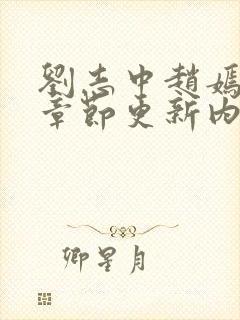 劉志中趙嫣
章節更新內
卿星月